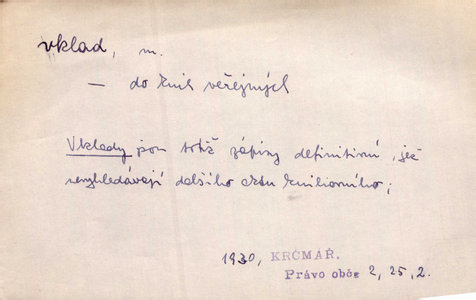 vklad, m.
— do knih veřejných
Vklady jsou totiž zápisy definitivní, jež
nevyhledávají dalšího aktu knihovního;
1930, KRČMÁŘ.
Právo obč. 2, 25, 2.